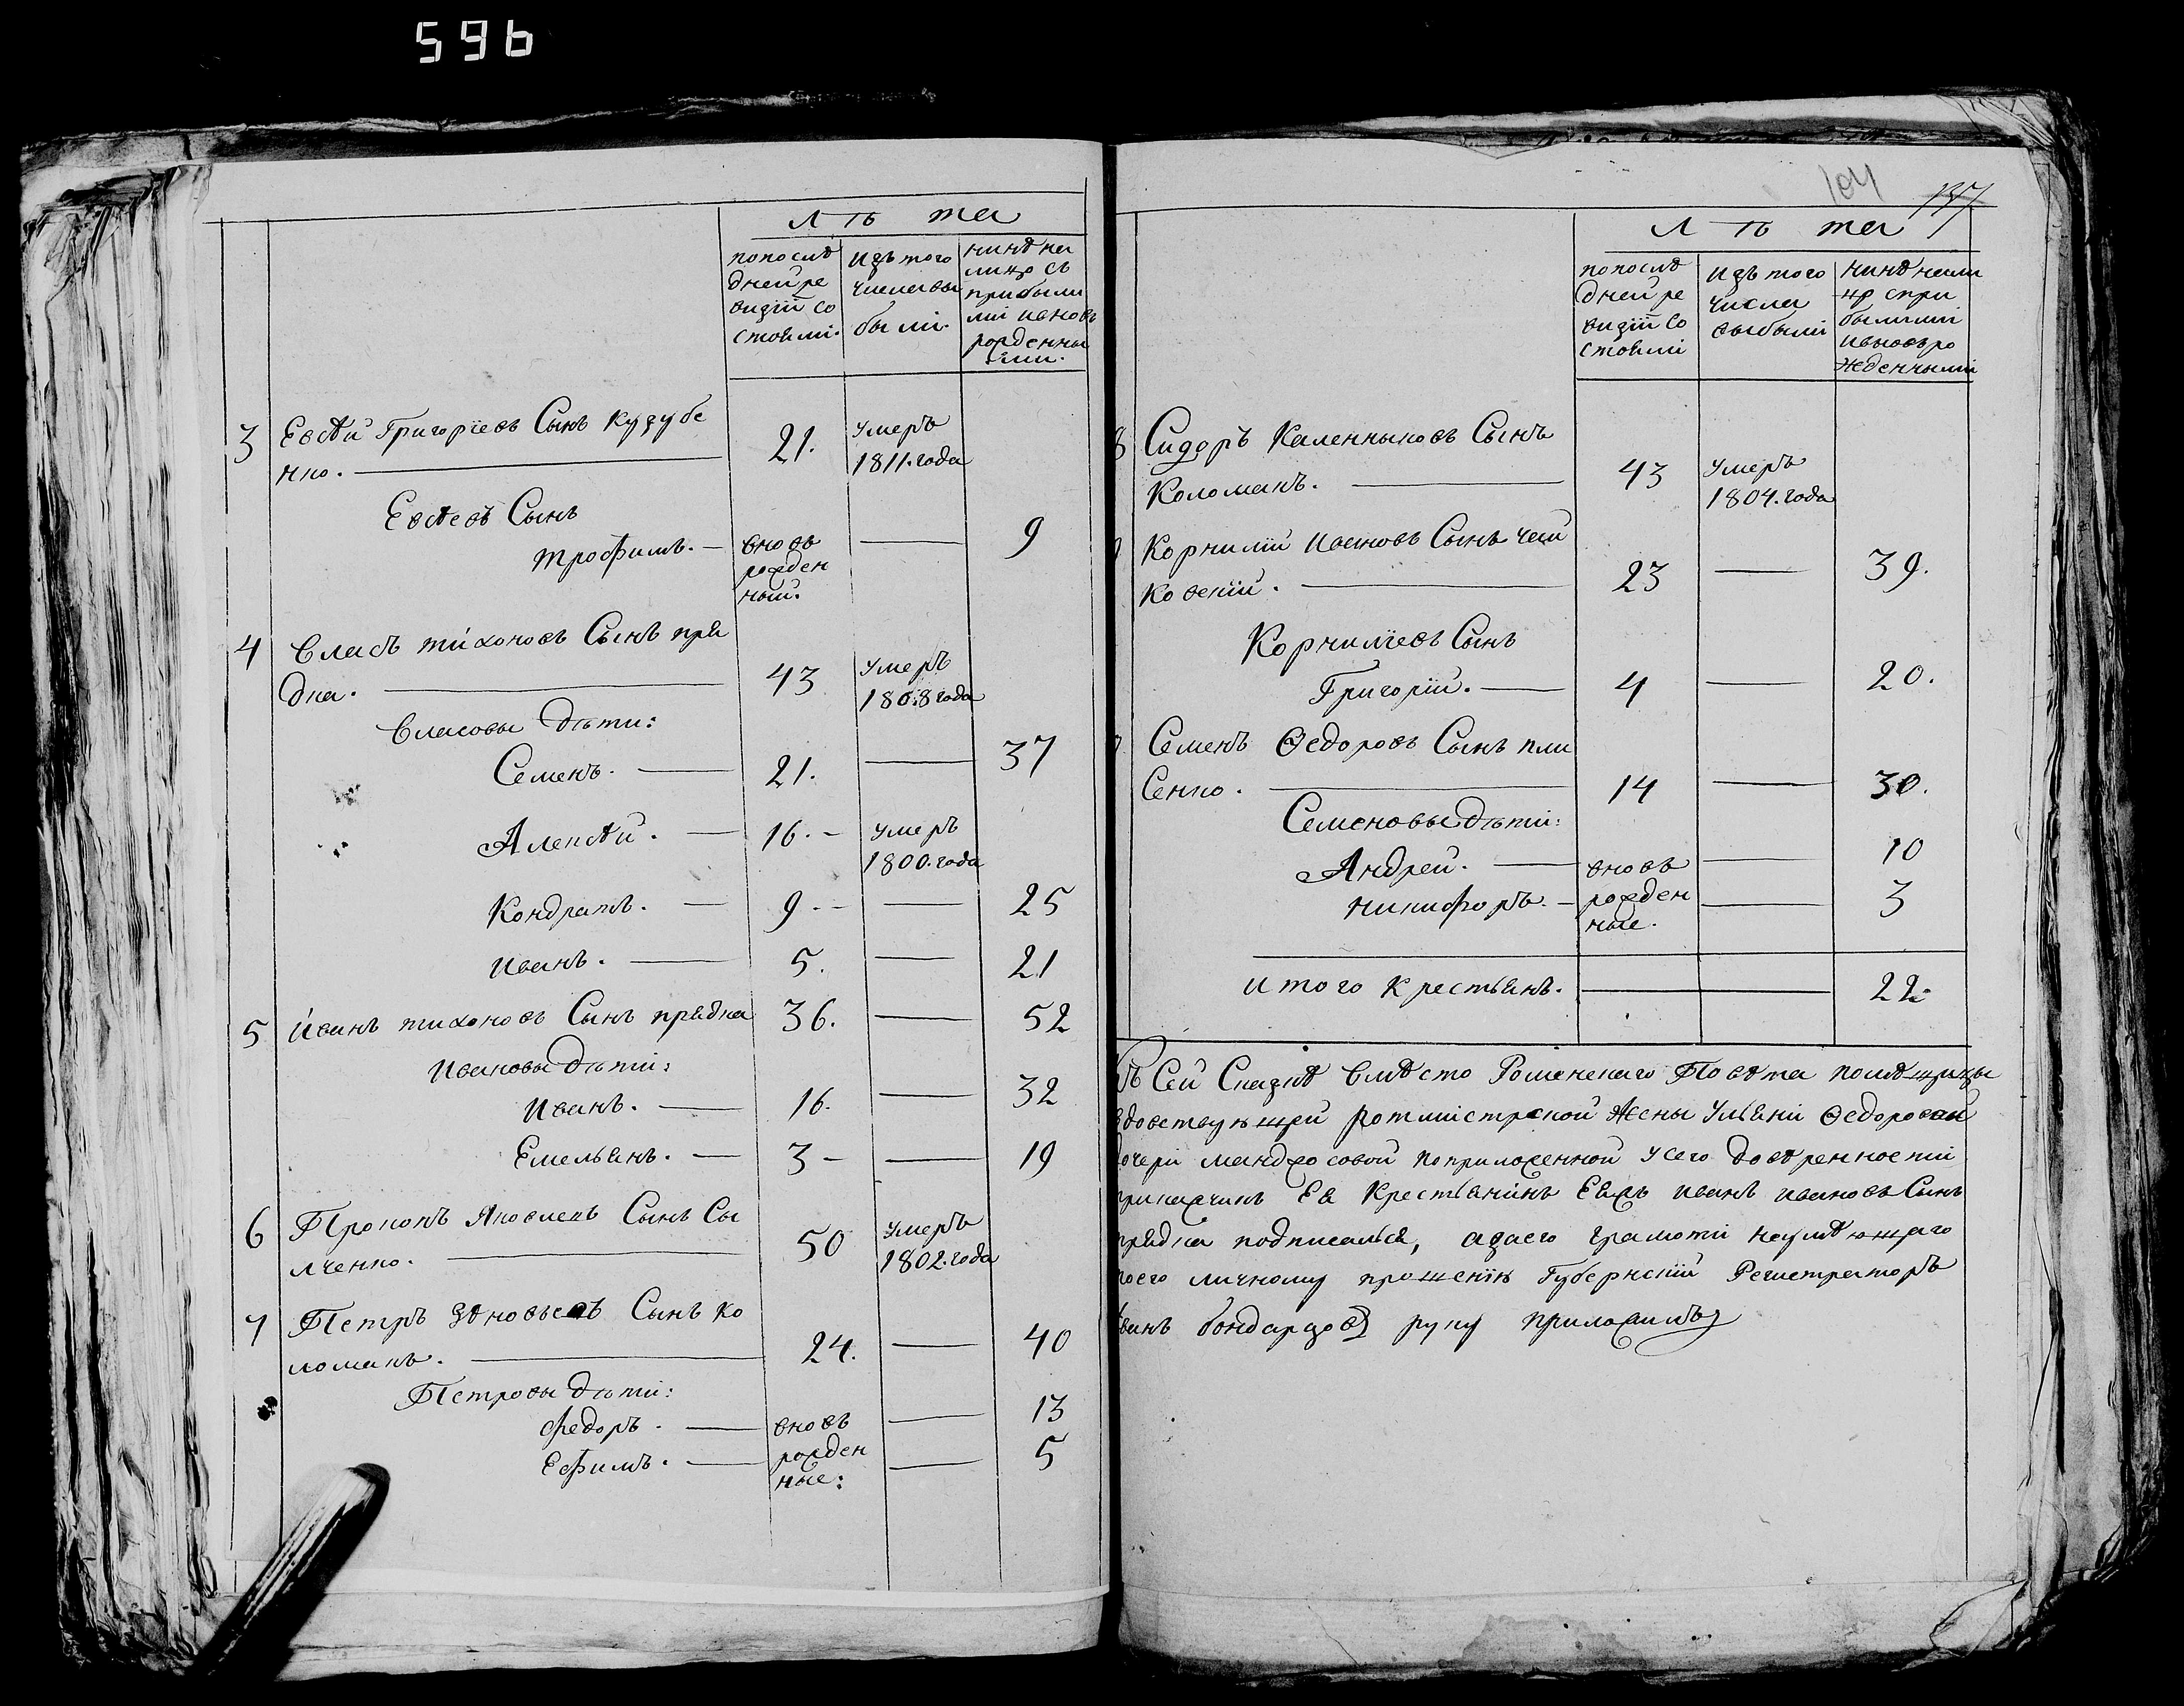 596
Лѣта
попослѣ
дней ре
визіи со
стояли.
изъ того
числа вы
были.
нинѣ на
лицо съ
прибылы
ми ивновь
рожденны
ми.
3 Евсѣй Григоріевъ Сынъ Кузубе
нко. 21. умеръ
1811. года
Евсѣевъ Сынъ
Трофимъ. вновь
рожден
ный. 9
4 Власъ тихоновъ Сынъ пря
дка. 43 умеръ
1808 года
Власовы дѣти:
Семенъ. 21. 37
Алексѣй. 16. умеръ
1800. года
Кондратъ. 9 25
иванъ. 5. 21
5 иванъ тихоновъ Сынъ прядка 36. 52
ивановы дѣти:
иванъ. 16. 32
Емельянъ. 3 19
6 Прокопъ Яковлевъ Сынъ Сы
лченко. 50 умеръ
1802. года
7 Петръ Сынъ ко
ломакъ. 24. 40
Петровы дѣти:
федоръ. вновь 13
Ефимъ. рожден
ные: 5
104
Лѣта
попослѣ
дней ре
визіи со
стояли
изъ того
числа
выбыли
нинѣ нали
цо спри
былыми
ивновь ро
жденными
8 Сидоръ Каленыковъ Сынъ
Коломакъ. 43 умеръ
1804. года
Корнилій ивановъ Сынъ чай
ковскій. 23 39.
Корниліевъ Сынъ
Григорій. 4 20.
Семенъ Ѳедоровъ Сынъ пли
Сенко. 14 30.
Семеновы дѣти:
Андрей. вновь 10
никифоръ. рожден 3
ные.
итого крестьянъ. 22.
Сей Сказкѣ вмѣсто Роменскаго Повѣта помѣщицы
вдовствующей Ротмистрской жены Ульяни Ѳедоровой
дочери мандросовой поприложенной усего довѣренности
прикащикъ Ея Крестьянинъ иванъ ивановъ Сынъ
прядка подписался, азаего грамоти неумѣющаго
поего личному прошенію Губернскій Регистраторъ
иванъ бондарцовъ руку приложилъ